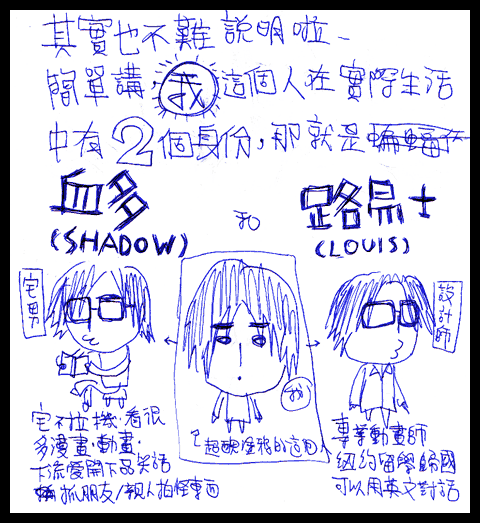 其實也不難說明啦~
簡單講,我這個人在實際生活
中有2個身份,那就是蝙蝠
血多 和 路易士
(SHADOW) (LOUIS)
宅男
設計師
我
宅不拉機·看很
多漫畫·動畫·
下流愛開下品笑話
抓朋友/親人拍怪東西
超酷炫我的這個人
專業動畫師
紐約留學歸國
可以用英文對話